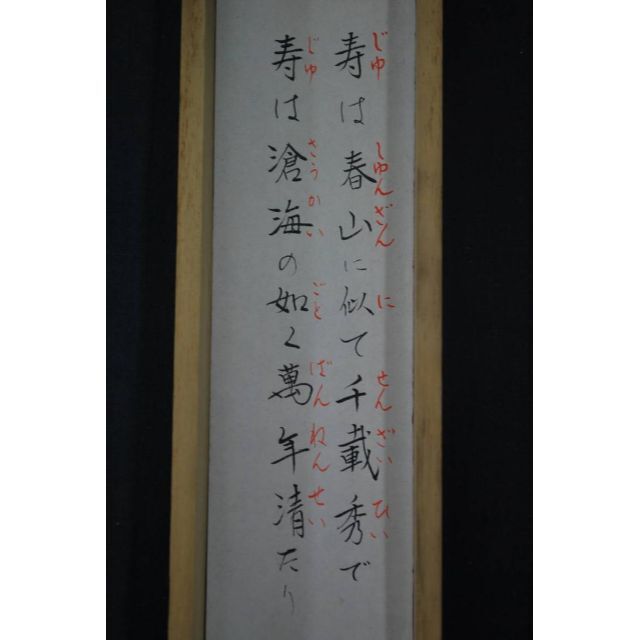 寿は春山に似て千載秀で
じゆ しゆんざん に せんざい ひい
寿は滄海の如く萬年清たり
じゆ さうかい ごと ばんねん せい